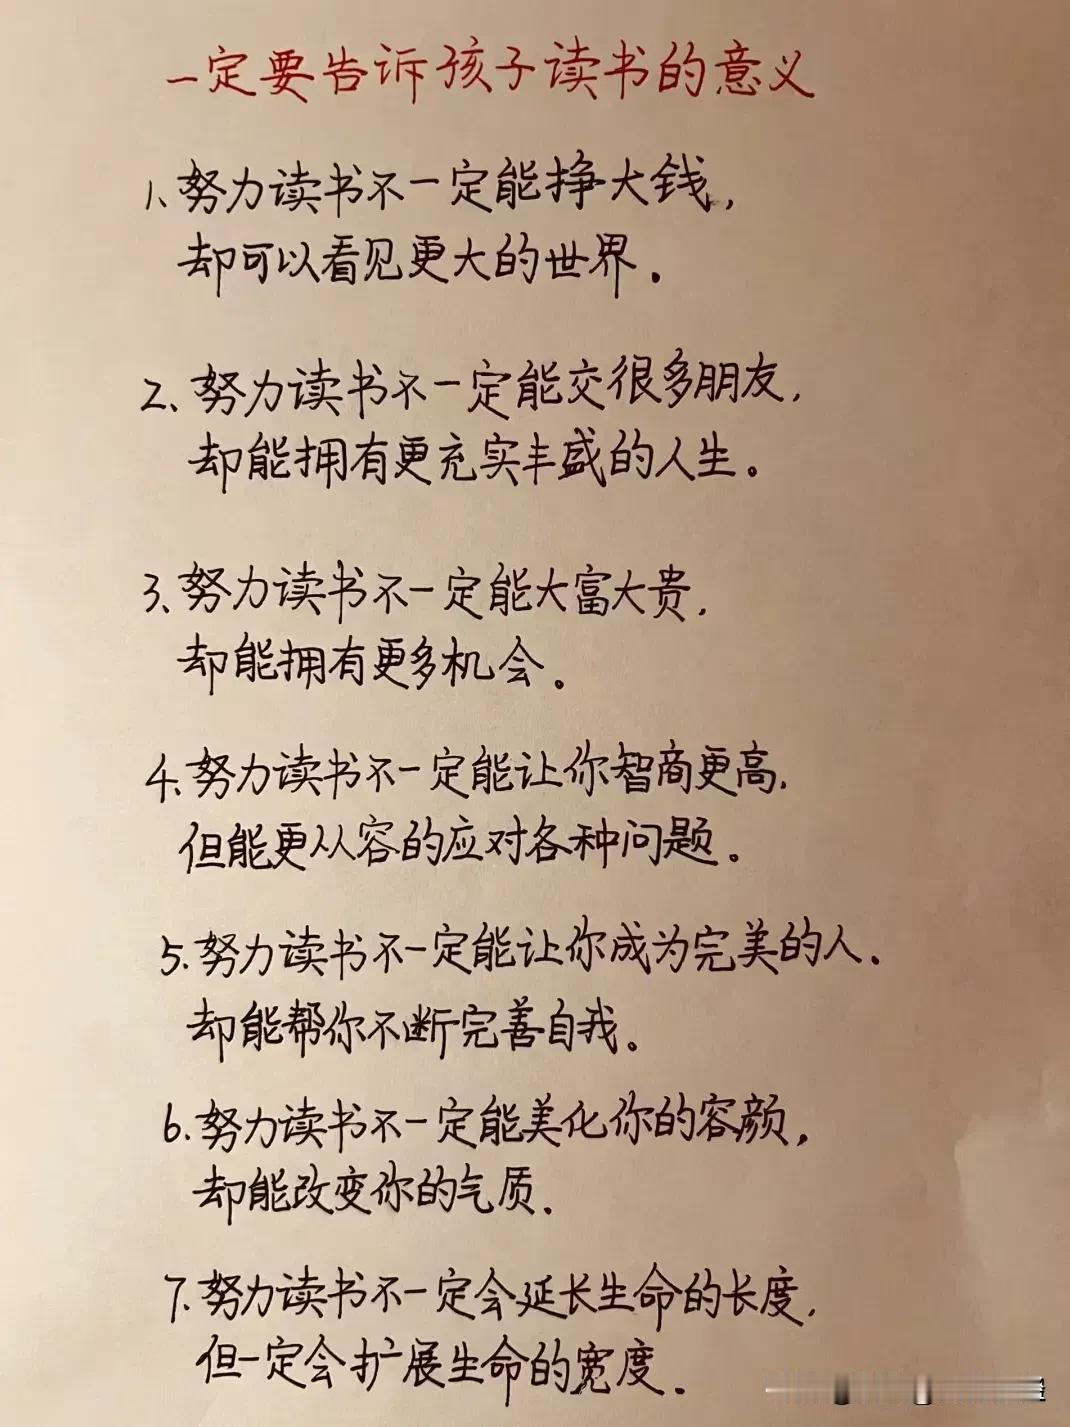 一定要告诉孩子读书的意义
1、努力读书不一定能挣大钱,
却可以看见更大的世界.
2、努力读书不一定能交很多朋友,
却能拥有更充实丰盛的人生。
3、努力读书不一定能大富大贵,
却能拥有更多机会。
4、努力读书不一定能让你智商更高,
但能更从容的应对各种问题。
5.努力读书不一定能让你成为完美的人.
却能帮你不断完善自我。
6.努力读书不一定能美化你的容颜,
却能改变你的气质.
7.努力读书不一定会延长生命的长度,
但一定会扩展生命的宽度.